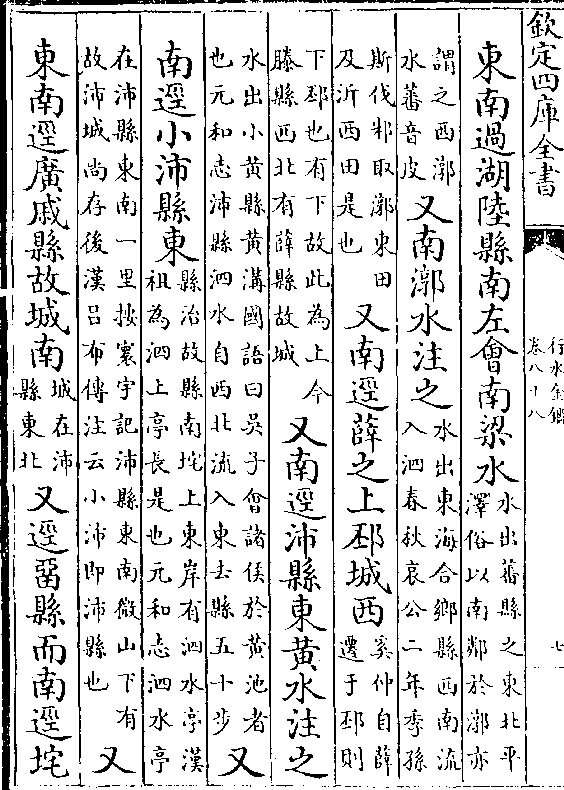 欽定四庫全書
行水金鑑
卷八十八
七
東南過湖陸縣南左會南梁水
水出蕃縣之東北平
澤俗以南鄰於漷亦
謂之西漷
水蕃音皮
又南漷水注之
水出東海合鄉縣西南流
入泗春秋哀公二年季孫
斯伐邾取漷東田
及沂西田是也
又南逕薛之上邳城西
奚仲自薛
遷于邳則
下邳也有下故此為上今
滕縣西北有薛縣故城
又南逕沛縣東黃水注之
水出小黃縣黃溝國語曰吳子會諸侯於黃池者
也元和志沛縣泗水自西北流入東去縣五十步
又
南逕小沛縣東
縣治故縣南垞上東岸有泗水亭漢
祖為泗上亭長是也元和志泗水亭
在沛縣東南一里按寰宇記沛縣東南微山下有
故沛城尚存後漢呂布傳注云小沛即沛縣也
又
東南逕廣戚縣故城南
城在沛
縣東北
又逕畱縣而南逕垞